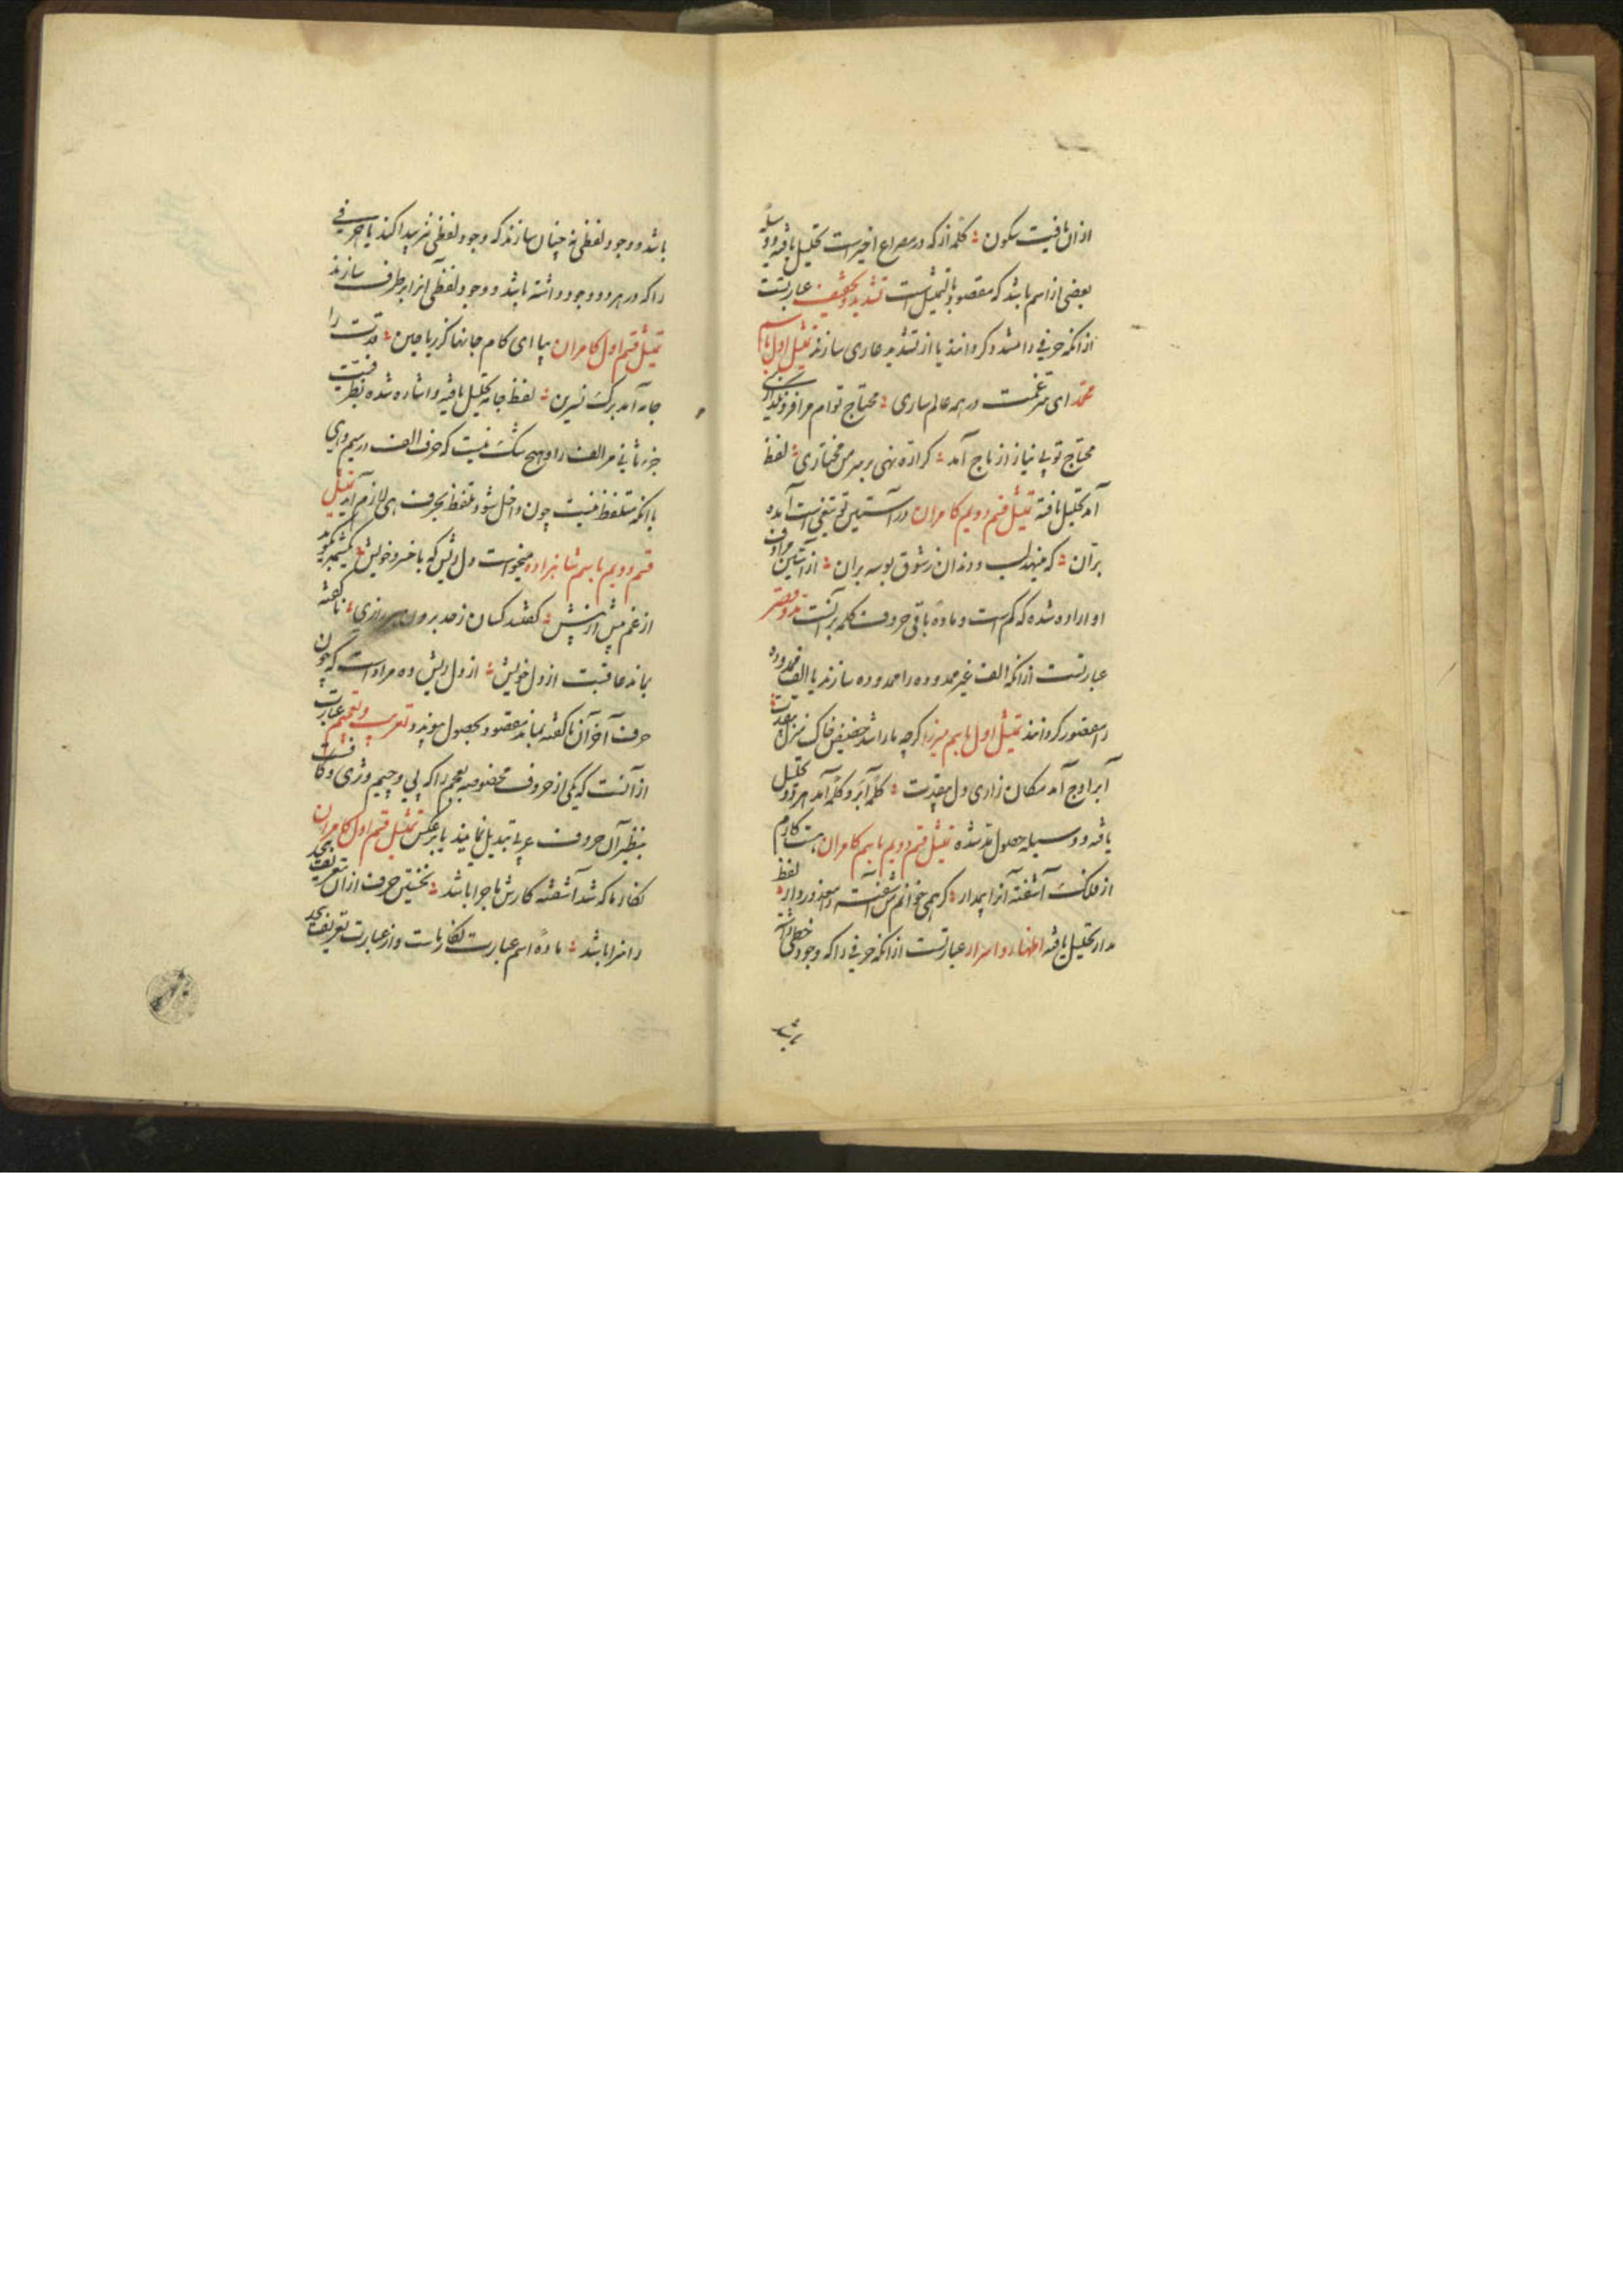 ازان یافت سکون ؞ کلمه از که در مصراع اخیر است تحلیل یافته و وسیله
بعضی از اسم باشد که مقصود بالتمثیل است تشدید و تخفیف عبارتست
ازانکه حرفی را مشدد کردانند یا از تشدید عاری سازند تمثیل اول باسم
محمد ای غمت در همه عالم ساری ؞ محتاج توام مرا فرو نگذاری
محتاج تو بی نیاز از تاج آمد ؞ کر اره نهی بر سر من مختاری ؞ لفظ
آمد تحلیل یافته تمثیل قسم دویم کامران در آستین تو تیغی است آمده
بران ؞ که مینهد لب و دندان ز شوق بوسه بران ؞ از آستین مرادف
او اراده شده که کم است و ماده باقی حروف کلمه برانست مد و قصر
عبارتست ازانکه الف غیر ممدوده را ممدوده سازند یا الف ممدوده
را مقصور کردانند تمثیل اول باسم میرزا کرچه ما را شد حضیض خاک منزل
آبر اوج آمد مکان زاری دل ؞ کلمه آبر و کلمه آمد هر دو تحلیل
یافته و وسیله حصول مد شده تمثیل قسم دویم باسم کامران هست کارم
از فلک آشفته آنرا پدار ؞ کر همی خوانم شفته معذور دار ؞ لفظ
مدار تحلیل یافته اظهار و اسرار عبارتست ازانکه حرفی را که وجود خطی داشته
باشد
باشد و وجود لفظی نه چنان سازند که وجود لفظی نیز پیدا کند یا حرفی
را که در هر دو وجود داشته باشد و وجود لفظی آنرا برطرف سازند
تمثیل قسم اول کامران بیا ای کام جانها کز ریاحین ؞ قدت را
جامه آمد برک نسرین ؞ لفظ جامه تحلیل یافته و اشاره شده بظرفیت
جزء ثانی مر الف را و هیچ شک نیست که حرف الف در رسم وی
با انکه متلفظ نیست چون داخل شود تلفظ بحرف وی لازم آید تمثیل
قسم دویم باسم شاهزاده میخواست دل ریش که با خسرو خویش ؞
از غم بیش از پیش ؞ کفتند کسان ز حد برون رازی ؞ ناکفته
بماند عاقبت از دل خویش ؞ از دل ریش ده مراد است که چون
حرف آخر آن ناکفته بماند مقصود بحصول پیوندد تعریب و تعجیم عبارت
ازانست که یکی از حروف مخصوصه بعجم را که پی و چیم و ژی و کاف است
بنظیر آن حروف عربی تبدیل نمایند یا برعکس تمثیل قسم اول کامران
نکار ما که شد آشفته کارش ماجرا باشد ؞ نخستین حرف ازان
را سزا باشد ؞ ماده اسم عبارت نکار ماست و از عبارت